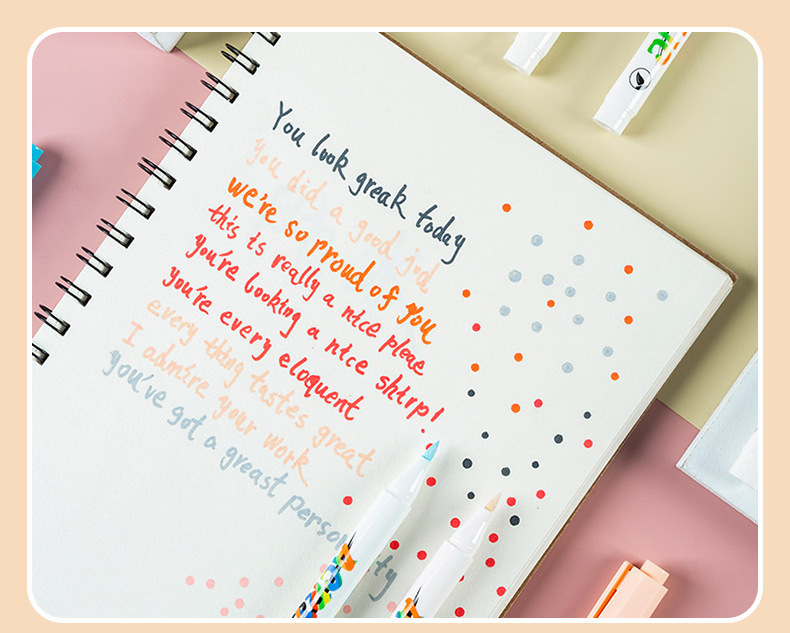 You look greak today
you did a good jod
we're so proud of you
this is really a nice pleae
you're looking a nice shirp!
you're every eloquent
every thing tastes great
I admire your work
you've got a greast perso ty